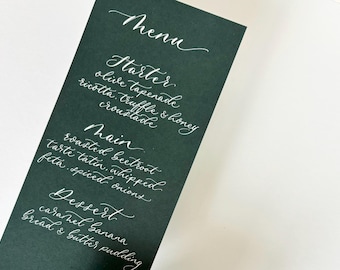 Menu
Starter
olive tapenade
ricotta, truffle & honey
croustade
Main
roasted beetroot
tarte tatin, whipped
feta, spiced onions
Dessert
caramel banana
bread & butter pudding